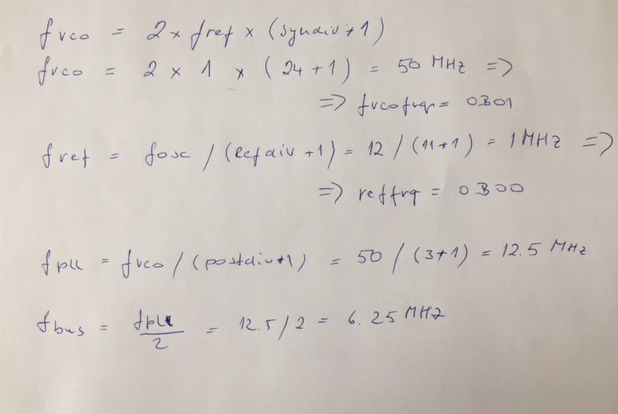 fvco = 2 x fref x (syndiv+1)
fvco = 2 x 1 x (24+1) = 50 MHz =>
=> fvcofrq = 0B01
fref = fosc / (Refdiv+1) = 12 / (11+1) = 1 MHz =>
=> reffrq = 0B00
fpll = fvco / (postdiv+1) = 50 / (3+1) = 12.5 MHz
fbus = fpll / 2 = 12.5/2 = 6.25 MHz